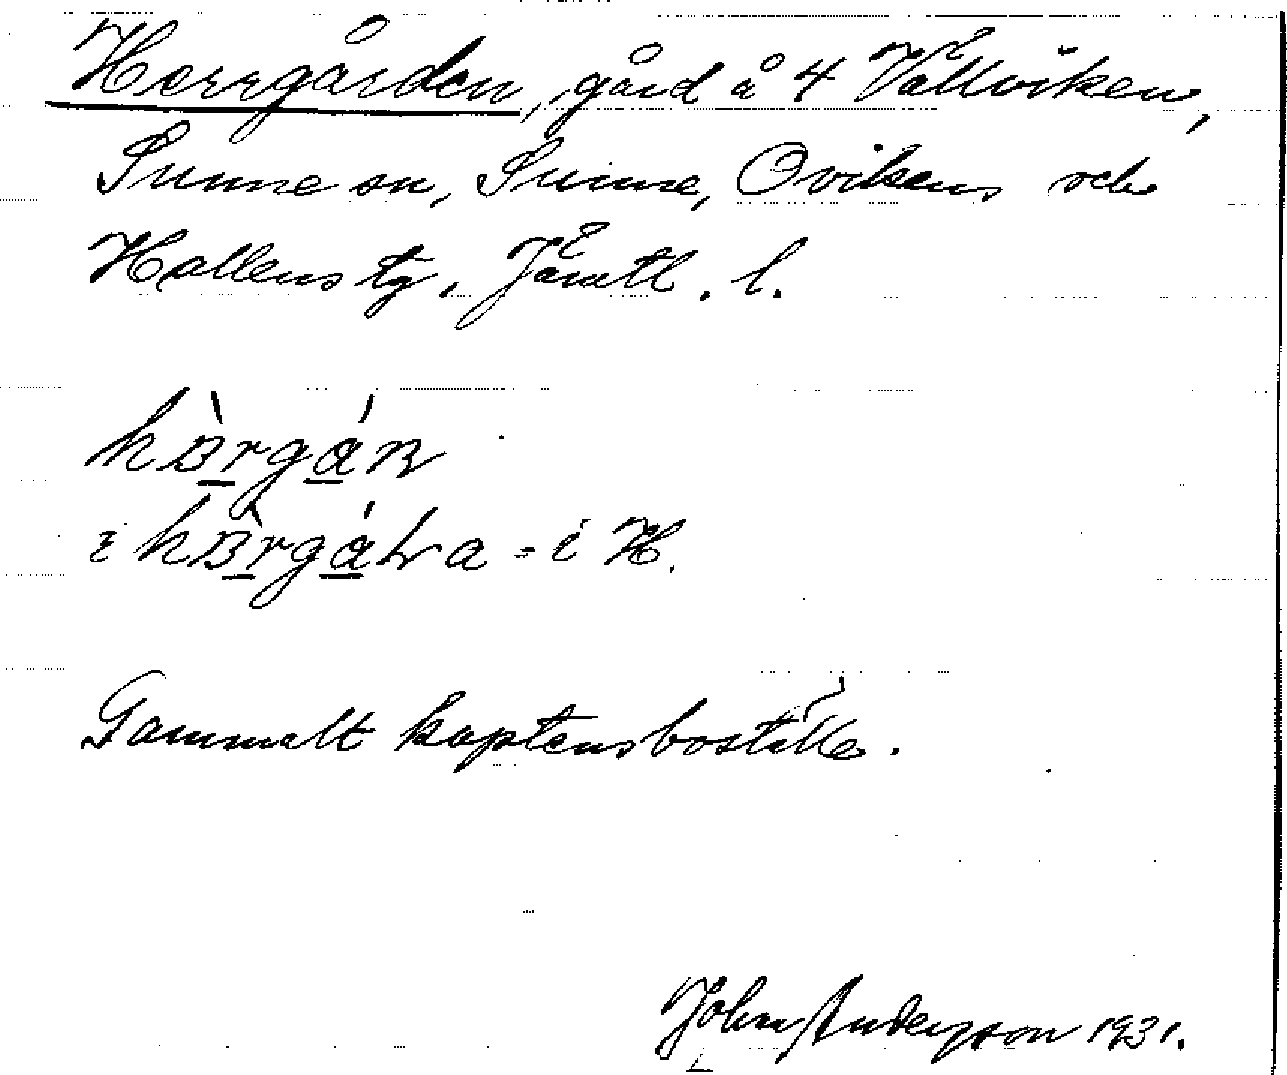 Herrgården, gård å 4 Vällviken,
Sunne sn, Sunne, Ovikens och
Hallens tg, Jämtl. l.
i = i H.
Gammalt kaptensboställe.
John Anderson 1931.